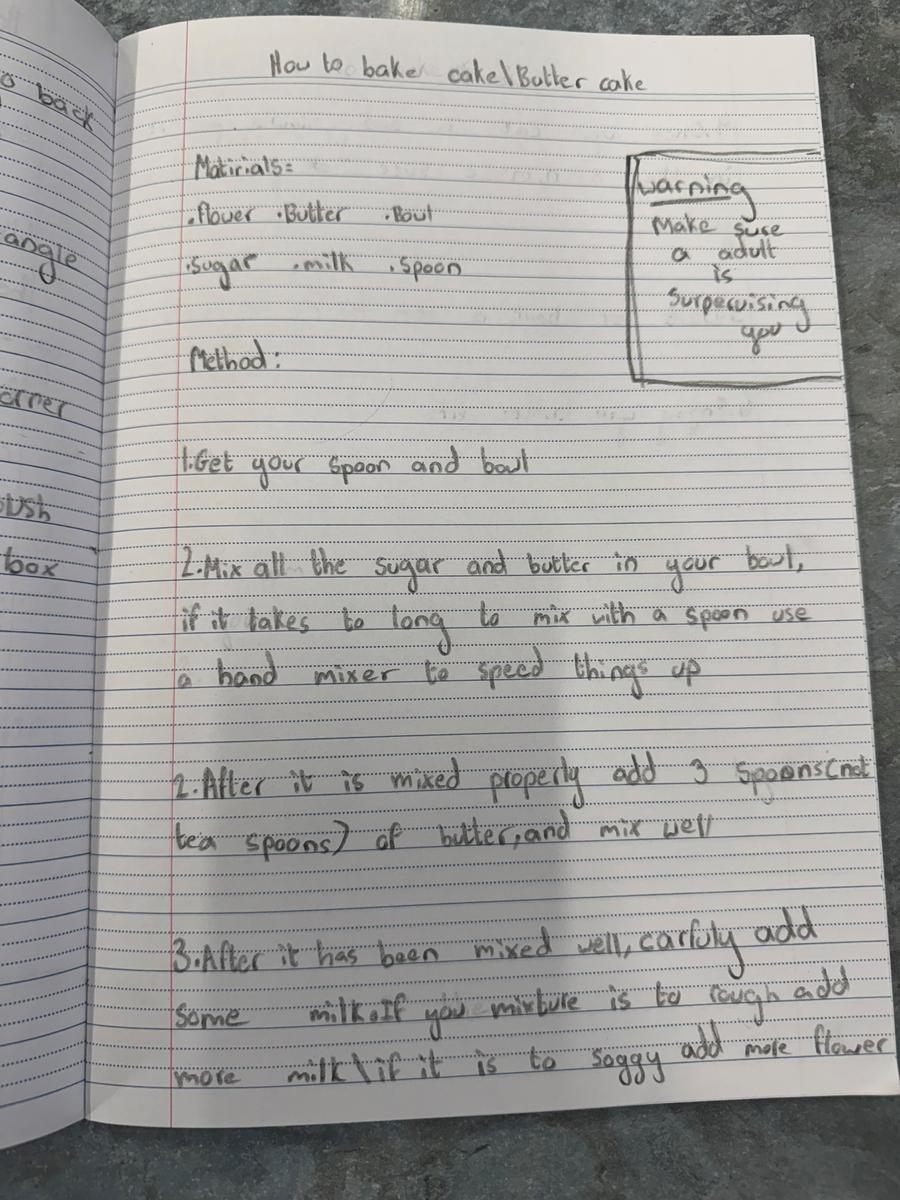 How to bake cake\Butter cake
Matirials:
.flower .Butter .Bowl
.sugar .milk .spoon
Warning
Make sure
a adult
is
Surpervising
you
Method:
1.Get your spoon and bowl
2.Mix all the sugar and butter in your bowl,
if it takes to long to mix with a spoon use
a hand mixer to speed things up
2.After it is mixed properly add 3 spoons(not
tea spoons) of butter,and mix well
3.After it has been mixed well,carfuly add
some milk.If you mixture is to rough add
more milk\if it is to soggy add more flower
o back
angle
box